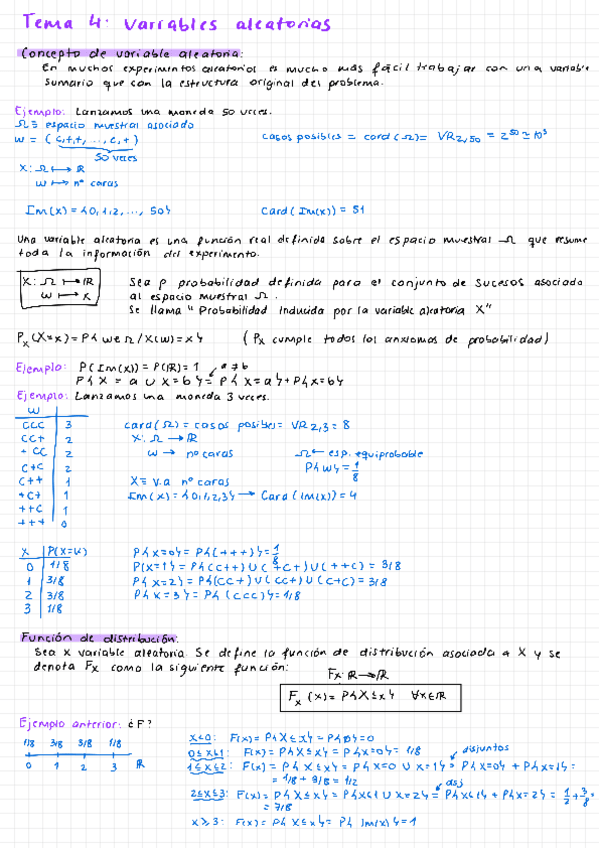 Tema 4: Variables aleatorias
Concepto de variable aleatoria:
En muchos experimentos aleatorios es mucho más fácil trabajar con una variable
sumario que con la estructura original del problema.
Ejemplo: Lanzamos una moneda 50 veces.
Ω ≡ espacio muestral asociado
w = (c,+,+, ..., c, +)
50 veces
casos posibles = card(Ω) = VR2,50 = 2^50 ≃ 10^5
X: Ω ↦ ℝ
w ↦ nº caras
Im(X) = {0,1,2, ..., 50}
Card(Im(X)) = 51
Una variable aleatoria es una función real definida sobre el espacio muestral Ω que resume
toda la información del experimento.
X: Ω ↦ ℝ
w ↦ x
Sea p probabilidad definida para el conjunto de sucesos asociado
al espacio muestral Ω.
Se llama "Probabilidad Inducida por la variable aleatoria X"
Px(X=x) = P{w∈Ω / X(w) = x}
(Px cumple todos los axiomas de probabilidad)
Ejemplo: P(Im(X)) = P(ℝ) = 1
a≠b
P{X = a ∪ X = b} = P{X = a} + P{X = b}
Ejemplo: Lanzamos una moneda 3 veces.
w
CCC 3
CC+ 2
+CC 2
C+C 2
C++ 1
+C+ 1
++C 1
+++ 0
card(Ω) = casos posibles = VR2,3 = 8
X: Ω → ℝ
w → nº caras
Ω ← esp. equiprobable
P{w} = 1/8
X ≡ v.a nº caras
Im(X) = {0,1,2,3} → Card(Im(X)) = 4
X P(X=x)
0 1/8
1 3/8
2 3/8
3 1/8
P{X=0} = P{(+++)} = 1/8
P(X=1} = P{(C++) ∪ (+C+) ∪ (++C) = 3/8
P{X=2} = P{(CC+) ∪ (CC+) ∪ (C+C) = 3/8
P{X=3} = P{(CCC)} = 1/8
Función de distribución:
Sea X variable aleatoria. Se define la función de distribución asociada a X y se
denota Fx como la siguiente función:
Fx: ℝ → ℝ
Fx(x) = P{X≤x} ∀x∈ℝ
Ejemplo anterior: ¿F?
1/8 3/8 3/8 1/8
0 1 2 3 ℝ
x<0: F(x) = P{X≤x} = P{∅} = 0
0≤x≤1: F(x) = P{X≤x} = P{X=0} = 1/8
disjuntos
1≤x≤2: F(x) = P{X≤x} = P{X=0 ∪ X=1} = P{X=0} + P{X=1} =
= 1/8 + 3/8 = 1/2
disj
2≤x≤3: F(x) = P{X≤x} = P{X≤1 ∪ X=2} = P{X≤1} + P{X=2} = 1/2 + 3/8 =
= 7/8
x≥3: F(x) = P{X≤x} = P{Im(X)} = 1